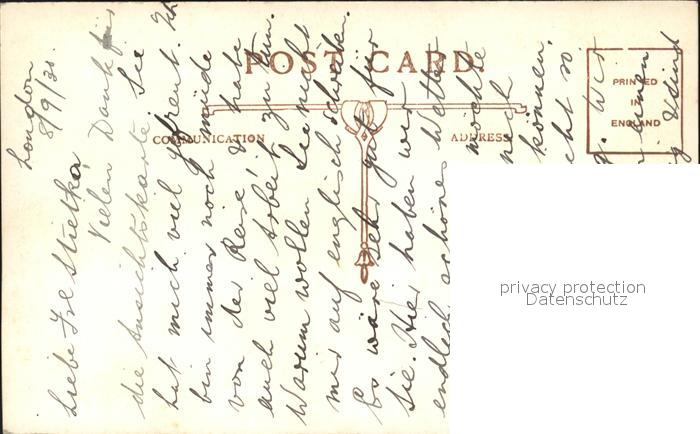 POST CARD.
COMMUNICATION
ADDRESS
PRINTED
IN
ENGLAND
London
8/9/31.
Liebe
Vielen Dank für
die Ansichtskarte. Sie
hat mich viel gefreut. Ich
bin immer noch müde
von der Reise & habe
auch viel Arbeit zu tun.
Warum wollen Sie nicht
mir auf englisch schreiben.
Es wäre sehr gut für
Sie. Hier haben wir
endlich schönes Wetter
möchte
noch
können,
nicht so
Wir
einen
privacy protection
Datenschutz